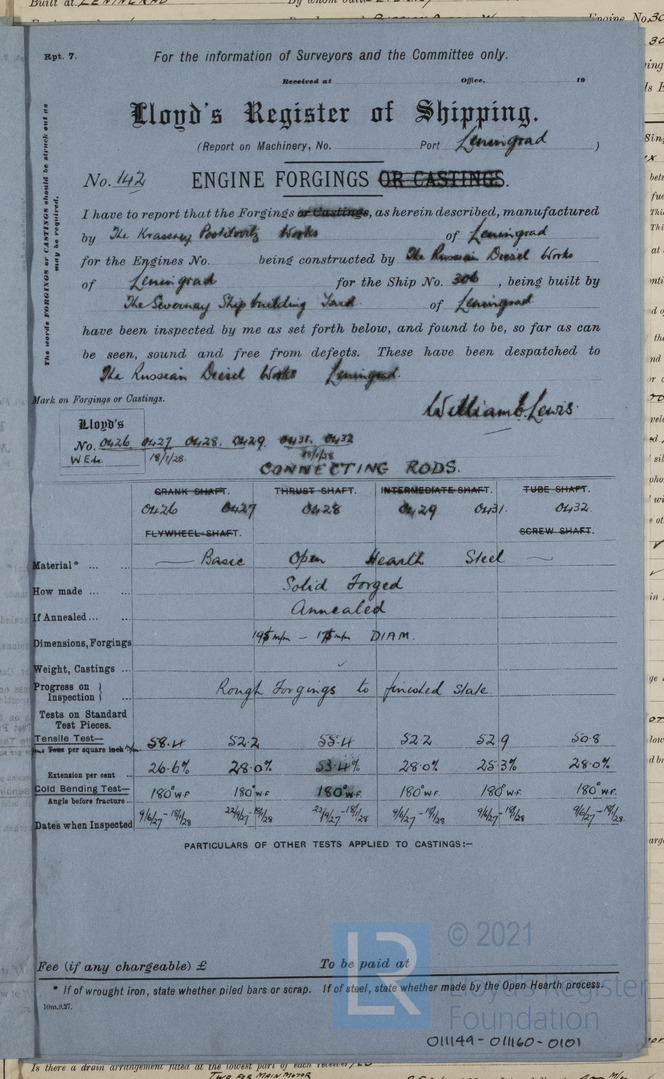 Built at LENINGRAD
Engine No. 30
Rpt. 7.
For the information of Surveyors and the Committee only.
Received at Office, 19
Lloyd's Register of Shipping.
(Report on Machinery, No. Port Leningrad )
No. 142 ENGINE FORGINGS OR CASTINGS.
The words FORGINGS or CASTINGS should be struck out as may be required.
I have to report that the Forgings or Castings, as herein described, manufactured
by The Works of Leningrad
for the Engines No. being constructed by The Russian Diesel Works
of Leningrad for the Ship No. 306, being built by
The Severnay Shipbuilding Yard of Leningrad
have been inspected by me as set forth below, and found to be, so far as can
be seen, sound and free from defects. These have been despatched to
The Russian Diesel Works Leningrad.
Mark on Forgings or Castings.
William E Lewis
Lloyd's
No. 0426 0427 0428. 0429 0431. 0432
W.E.L. 18/1/28. 18/1/28
CONNECTING RODS.
CRANK SHAFT. THRUST SHAFT. INTERMEDIATE SHAFT. TUBE SHAFT.
0426 0427 0428 0429 0431. 0432
FLYWHEEL SHAFT. SCREW SHAFT.
Material* ... ... Basic Open Hearth Steel
How made ... ... Solid Forged
If Annealed ... ... Annealed
Dimensions, Forgings DIAM.
Weight, Castings ...
Progress on Inspection } ... Rough Forgings to finished State
Tests on Standard
Test Pieces.
Tensile Test— 58.4 52.2 55.4 52.2 52.9 50.8
per square
Extension per cent 26.6% 28.0% 28.0% 25.3% 28.0%
Cold Bending Test— 180° W.F. 180° W.F. 180° W.F. 180° W.F. 180° W.F. 180° W.F.
Angle before fracture ...
Dates when Inspected 9/6/27 - 18/1/28 9/6/27 - 18/1/28 9/6/27 - 18/1/28 9/6/27 - 18/1/28
PARTICULARS OF OTHER TESTS APPLIED TO CASTINGS:—
© 2021
LR
Lloyd's Register
Foundation
Fee (if any chargeable) £ To be paid at
* If of wrought iron, state whether piled bars or scrap. If of steel, state whether made by the Open Hearth process.
10m,9,27.
011149-011160-0101
Is there a drain arrangement fitted at the lowest part of each receiver
TWO FOR MAIN MOTOR